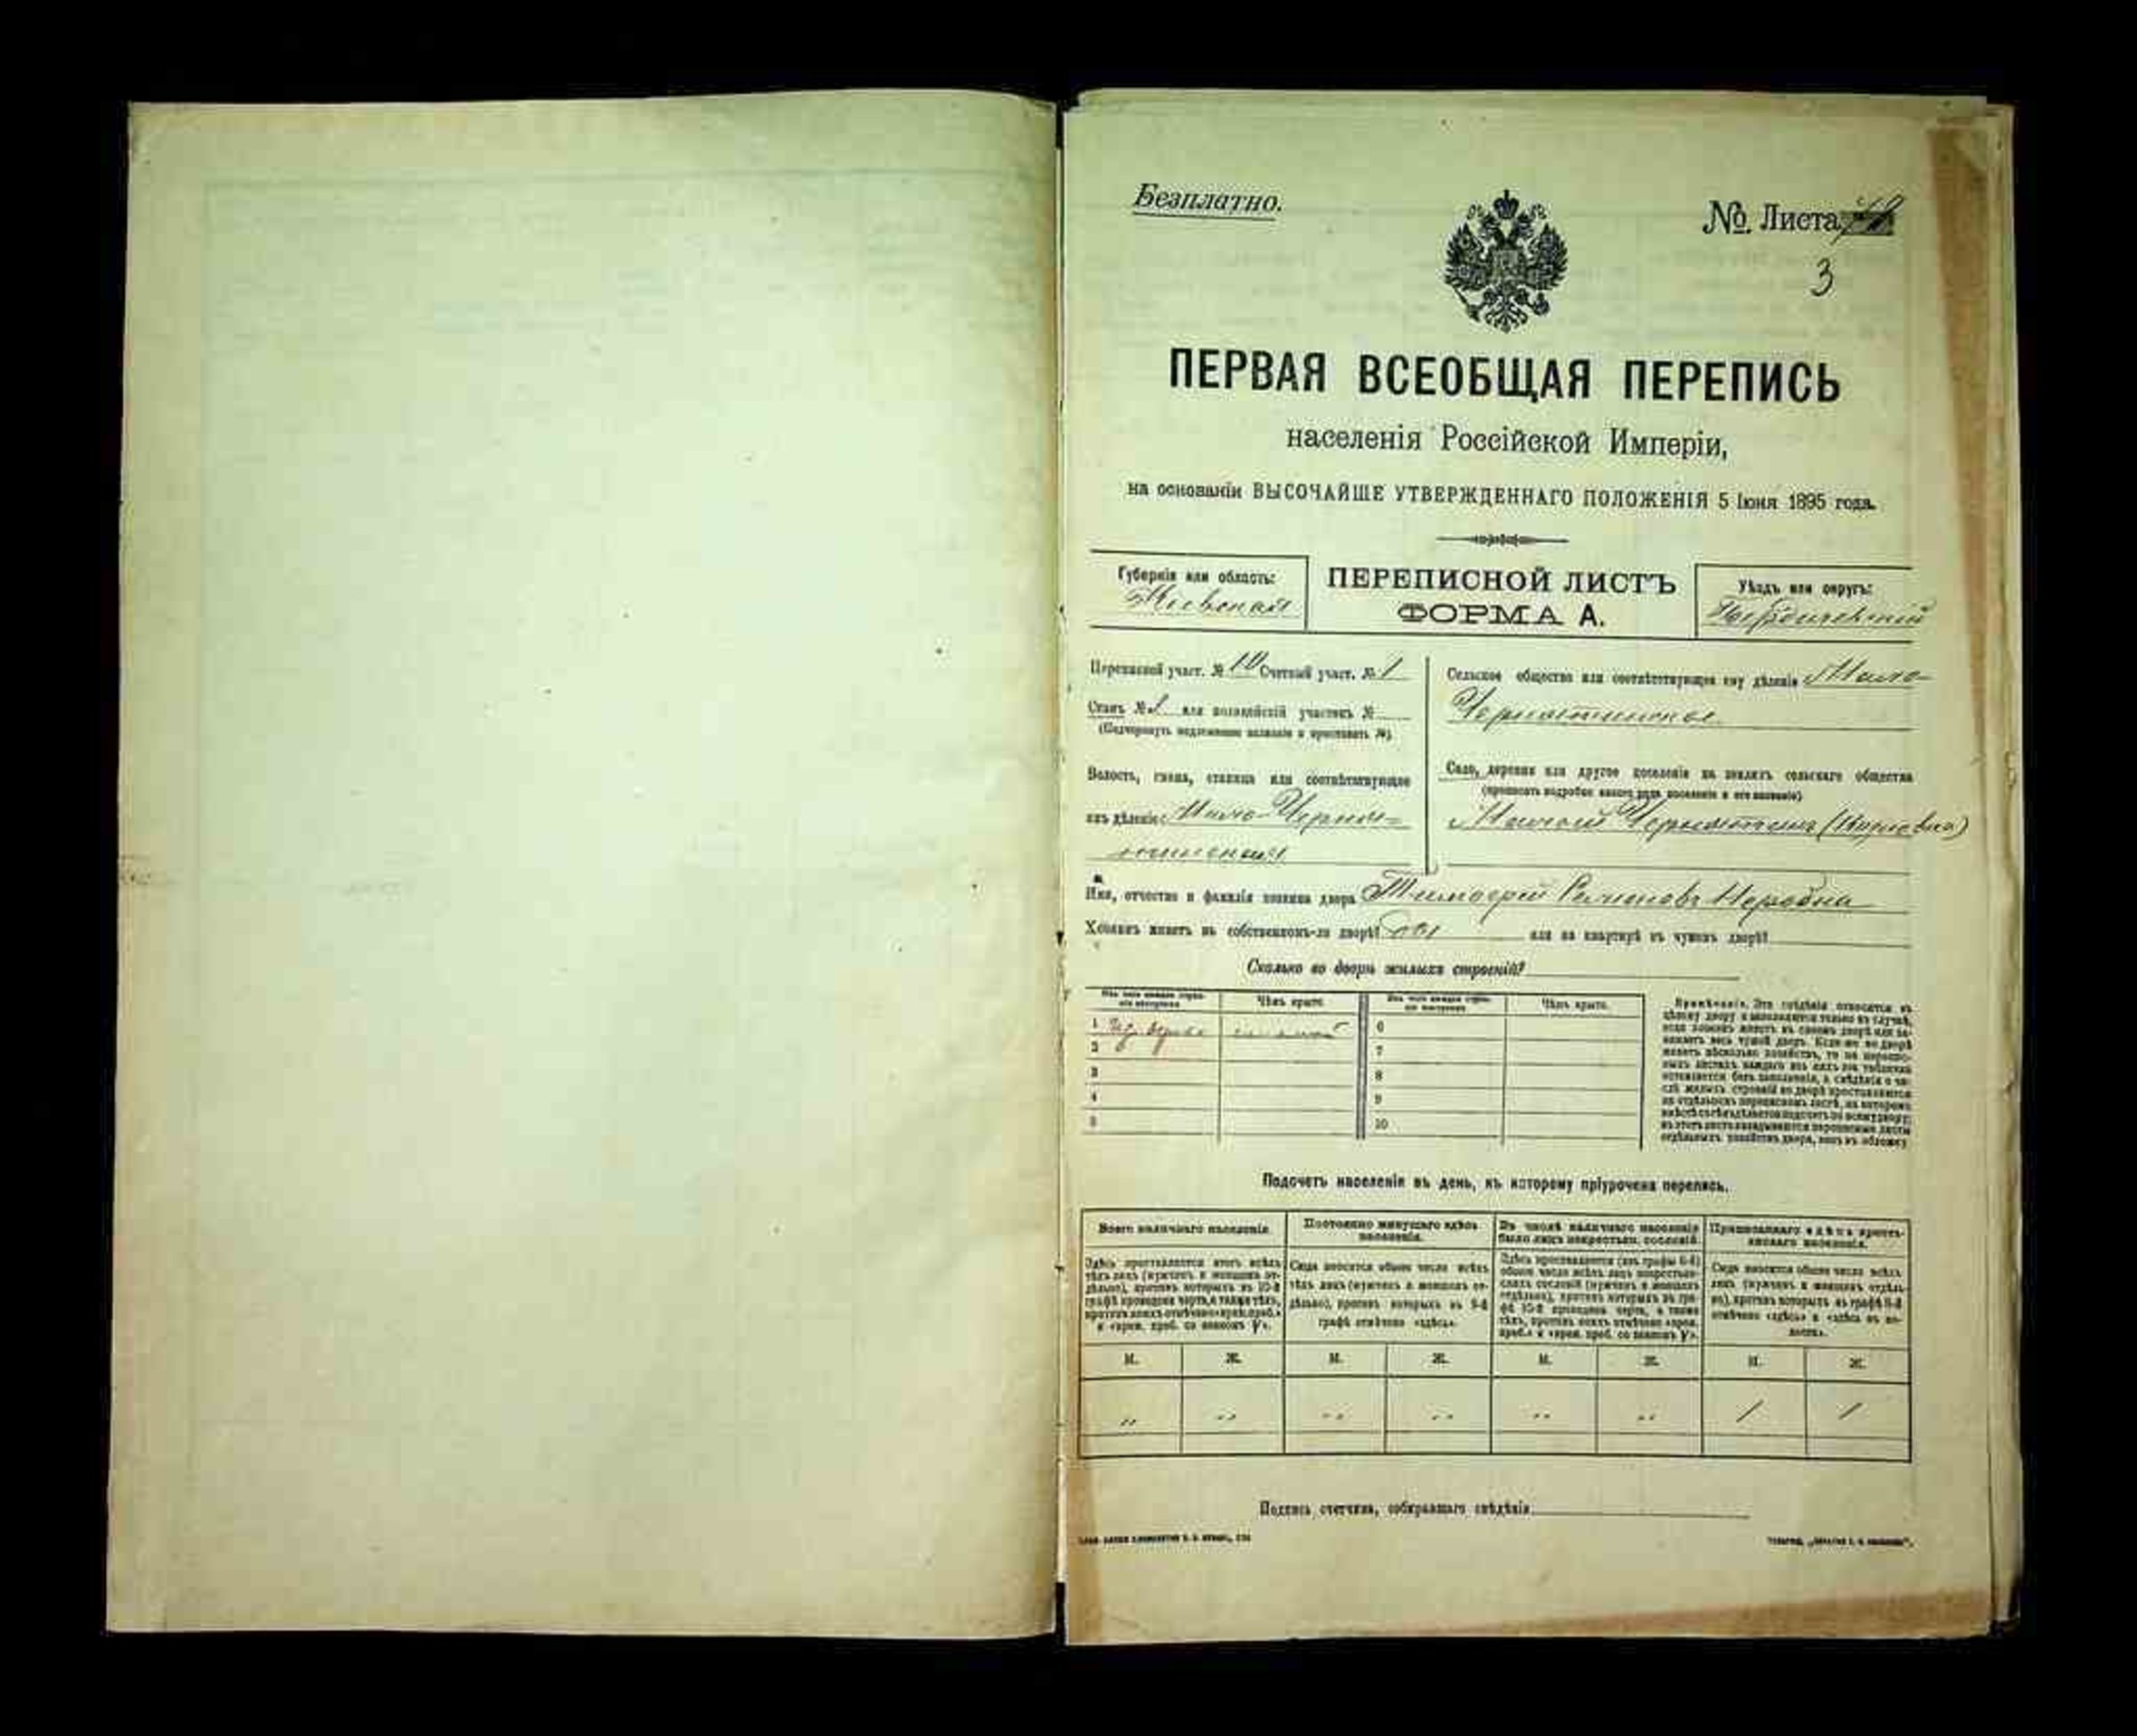 Безплатно.
№ Листа
3
ПЕРВАЯ ВСЕОБЩАЯ ПЕРЕПИСЬ
населенія Россійской Имперіи,
на основаніи ВЫСОЧАЙШЕ УТВЕРЖДЕННАГО ПОЛОЖЕНІЯ 5 Іюня 1895 года.
Губернія или область:
Кіевская
ПЕРЕПИСНОЙ ЛИСТЪ
ФОРМА А.
Уѣздъ или округъ:
Бердичевскій
Переписной участ. № 10 Счетный участ. № 1
Станъ № или полицейскій участокъ №
(Подчеркнуть надлежащее названіе и проставить №).
Волость, гмина, станица или соотвѣтствующее
имъ дѣленіе: Мало-Черня-
тинская
Сельское общество или соотвѣтствующее ему дѣленіе Мало-
Чернятинское
Село, деревня или другое поселеніе на земляхъ сельскаго общества
(прописать подробно какого рода поселеніе и его названіе)
Малый Чернятинъ
Имя, отчество и фамилія хозяина двора Тимофей
Хозяинъ живетъ въ собственномъ-ли дворѣ? или на квартирѣ въ чужомъ дворѣ?
Сколько во дворѣ жилыхъ строеній?
Изъ чего каждое строеніе выстроено
Чѣмъ крыто.
Изъ чего каждое строеніе выстроено
Чѣмъ крыто.
1 изъ дерева соломой 6
2 7
3 8
4 9
5 10
Примѣчаніе. Эти свѣдѣнія относятся къ
цѣлому двору и заполняются только въ случаѣ,
если хозяинъ живетъ въ своемъ дворѣ или занимаетъ
весь чужой дворъ. Если же во дворѣ
живетъ нѣсколько хозяйствъ, то на переписныхъ
листахъ каждаго изъ нихъ эта табличка
остается безъ заполненія, а свѣдѣнія о числѣ
жилыхъ строеній во дворѣ проставляются
на отдѣльномъ переписномъ листѣ, на которомъ
Подсчетъ населенія въ день, къ которому пріурочена перепись.
Всего наличнаго населенія.
Здѣсь проставляется итогъ всѣхъ
тѣхъ лицъ (мужчинъ и женщинъ отдѣльно),
противъ которыхъ въ 10-й
графѣ проведена черта, а также тѣхъ,
противъ коихъ отмѣчено «врем. преб.»
и «врем. преб. со знакомъ V».
Постоянно живущаго здѣсь
населенія.
Сюда вносится общее число всѣхъ
тѣхъ лицъ (мужчинъ и женщинъ отдѣльно),
противъ которыхъ въ 9-й
графѣ отмѣчено «здѣсь».
Въ числѣ наличнаго населенія
было лицъ некрестьян. сословій.
Здѣсь проставляется (изъ графы 6-й)
общее число всѣхъ лицъ некрестьянскихъ
сословій (мужчинъ и женщинъ
отдѣльно), противъ которыхъ въ графѣ
10-й проведена черта, а также
тѣхъ, противъ коихъ отмѣчено «врем.
преб.» и «врем. преб. со знакомъ V».
Приписаннаго здѣсь крестьянскаго
населенія.
Сюда вносится общее число всѣхъ
лицъ (мужчинъ и женщинъ отдѣльно),
противъ которыхъ въ графѣ 8-й
отмѣчено «здѣсь» и «здѣсь въ волости».
М. Ж. М. Ж. М. Ж. М. Ж.
" " " " " " 1 1
Подпись счетчика, собиравшаго свѣдѣнія